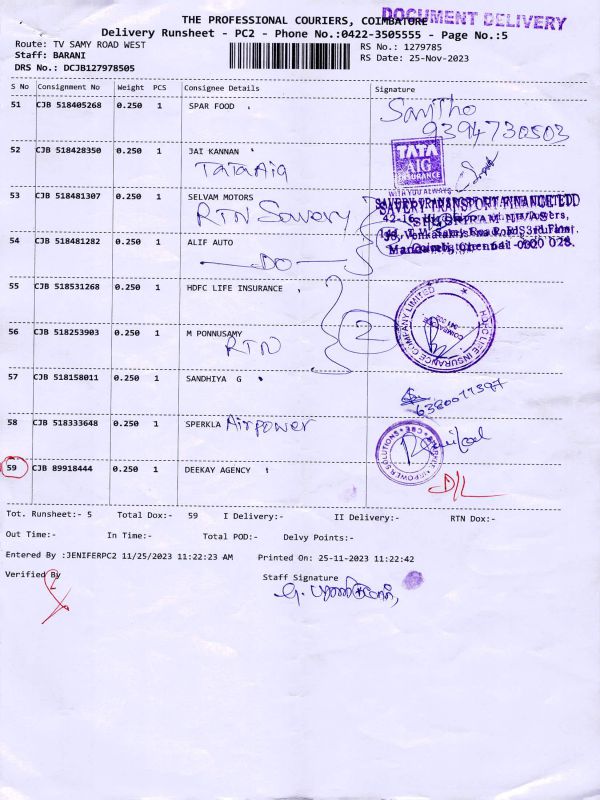 THE PROFESSIONAL COURIERS, COIMBATORE
DOCUMENT DELIVERY
Delivery Runsheet - PC2 - Phone No.:0422-3505555 - Page No.:5
Route: TV SAMY ROAD WEST
RS No.: 1279785
Staff: BARANI
RS Date: 25-Nov-2023
DRS No.: DCJB127978505
S No Consignment No Weight PCS Consignee Details Signature
51 CJB 518405268 0.250 1 SPAR FOOD
Santho
9394730503
52 CJB 518428350 0.250 1 JAI KANNAN
TataAig
TATA
AIG
INSURANCE
WITH YOU ALWAYS
53 CJB 518481307 0.250 1 SELVAM MOTORS
RTN Savery
54 CJB 518481282 0.250 1 ALIF AUTO
DO
55 CJB 518531268 0.250 1 HDFC LIFE INSURANCE
2
HDFC LIFE INSURANCE COMPANY LIMITED
COIMBATORE
56 CJB 518253903 0.250 1 M PONNUSAMY
RTN
57 CJB 518158011 0.250 1 SANDHIYA G
6380077397
58 CJB 518333648 0.250 1 SPERKLA Airpower
59 CJB 89918444 0.250 1 DEEKAY AGENCY
D/L
Tot. Runsheet:- 5 Total Dox:- 59 I Delivery:- II Delivery:- RTN Dox:-
Out Time:- In Time:- Total POD:- Delvy Points:-
Entered By :JENIFERPC2 11/25/2023 11:22:23 AM Printed On: 25-11-2023 11:22:42
Verified By
Staff Signature